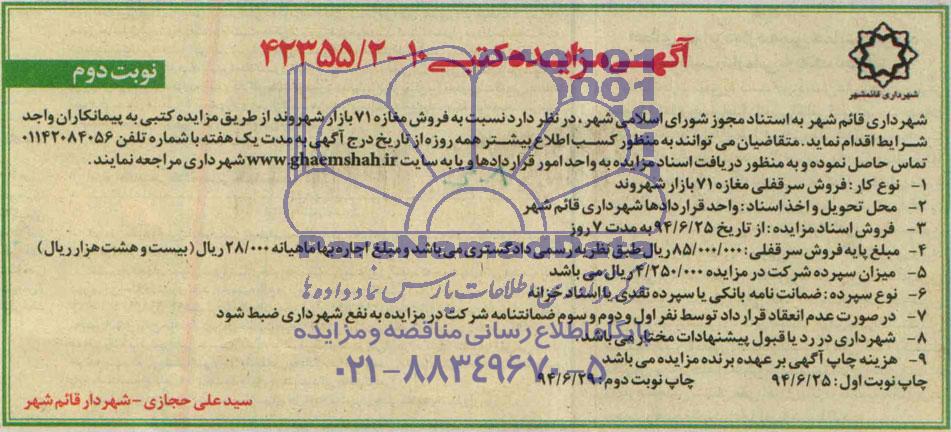 آگهی مزایده کتبی ۱۰-۴۲۳۵۵/۲
نوبت دوم
شهرداری قائمشهر
شهرداری قائم شهر به استناد مجوز شورای اسلامی شهر، در نظر دارد نسبت به فروش مغازه ۷۱ بازار شهروند از طریق مزایده کتبی به پیمانکاران واجد
شرایط اقدام نماید. متقاضیان می توانند به منظور کسب اطلاع بیشتر همه روزه از تاریخ درج آگهی به مدت یک هفته با شماره تلفن ۰۱۱۴۲۰۸۴۰۵۶
تماس حاصل نموده و به منظور دریافت اسناد مزایده به واحد امور قراردادها و یا به سایت www.ghaemshah.ir شهرداری مراجعه نمایند.
۱- نوع کار: فروش سرقفلی مغازه ۷۱ بازار شهروند
۲- محل تحویل و اخذ اسناد: واحد قراردادها شهرداری قائم شهر
۳- فروش اسناد مزایده: از تاریخ ۹۴/۶/۲۵ به مدت ۷ روز
۴- مبلغ پایه فروش سرقفلی: ۸۵/۰۰۰/۰۰۰ ریال طبق نظریه رسمی دادگستری می باشد و مبلغ اجاره بها ماهیانه ۲۸/۰۰۰ ریال (بیست و هشت هزار ریال)
۵- میزان سپرده شرکت در مزایده ۴/۲۵۰/۰۰۰ ریال می باشد
۶- نوع سپرده: ضمانت نامه بانکی یا سپرده نقدی یا اسناد خزانه
۷- در صورت عدم انعقاد قرارداد توسط نفر اول و دوم و سوم ضمانتنامه شرکت در مزایده به نفع شهرداری ضبط شود
۸- شهرداری در رد یا قبول پیشنهادات مختار می باشد
۹- هزینه چاپ آگهی بر عهده برنده مزایده می باشد
چاپ نوبت اول: ۹۴/۶/۲۵ چاپ نوبت دوم: ۹۴/۶/۲۹
سید علی حجازی - شهردار قائم شهر
پایگاه اطلاع رسانی مناقصه و مزایده
۰۲۱-۸۸۳۴۹۶۷۰-۵